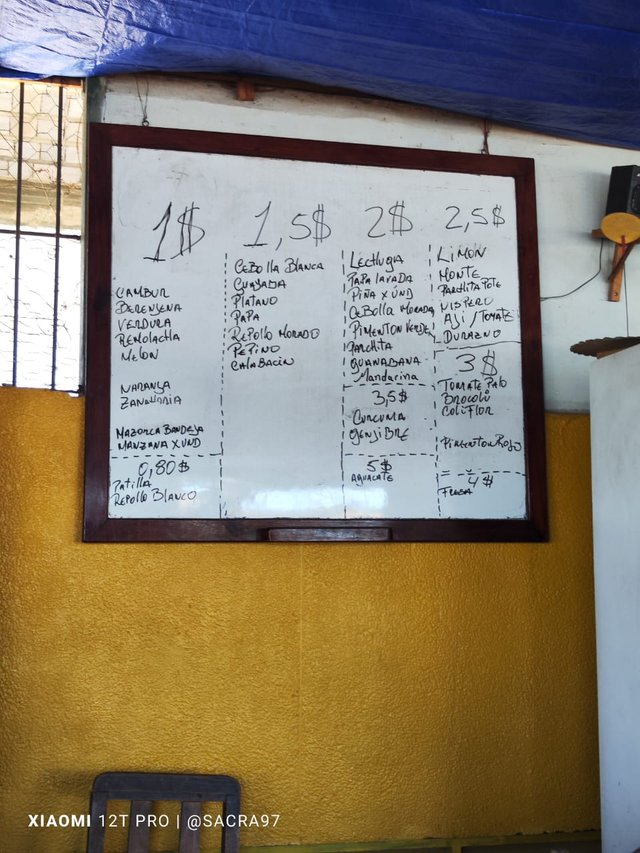 1$
CAMBUR
BERENJENA
VERDURA
REMOLACHA
MELON
NARANJA
ZANAHORIA
MAZORCA BANDEJA
MANZANA X UND
0,80 $
Patilla
Repollo Blanco
1,5$
CeBolla Blanca
GUAYABA
Platano
PAPA
Repollo MORADO
PEPINO
CALABACIN
2$
LecHuga
PAPA lavada
Piña x UND
CeBolla MORADA
PIMENTON VERDE
PARCHITA
GUANABANA
Mandarina
3,5$
CURCUMA
JENJIBRE
5$
AGUACATE
2,5$
LIMON
MONTE
PARCHITA POTE
NISPERO
AJI / TOMATE
DURAZNO
3$
TOMATE Palo
BROCOLU
COLIFLOR
PIMENTON ROJO
4$
FRESA
XIAOMI 12T PRO | @SACRA97